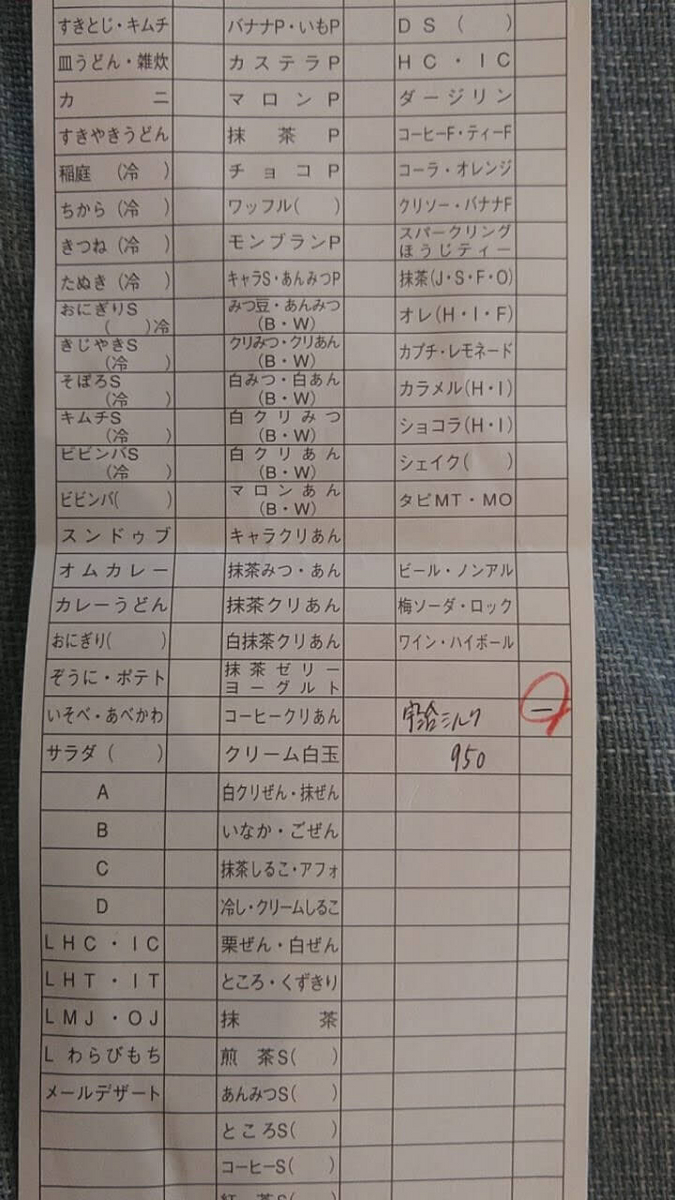 すきとじ・キムチ バナナP・いもP DS( )
皿うどん・雑炊 カステラP HC・IC
カニ マロンP ダージリン
すきやきうどん 抹茶P コーヒーF・ティーF
稲庭(冷 ) チョコP コーラ・オレンジ
ちから(冷 ) ワッフル( ) クリソー・バナナF
きつね(冷 ) モンブランP スパークリング
ほうじティー
たぬき(冷 ) キャラS・あんみつP 抹茶(J・S・F・O)
おにぎりS みつ豆・あんみつ オレ(H・I・F)
( )冷 (B・W)
きじやきS クリみつ・クリあん カプチ・レモネード
(冷 ) (B・W)
そぼろS 白みつ・白あん カラメル(H・I)
(冷 ) (B・W)
キムチS 白クリみつ ショコラ(H・I)
(冷 ) (B・W)
ビビンバS 白クリあん シェイク( )
(冷 ) (B・W)
ビビンバ( ) マロンあん タピMT・MO
(B・W)
スンドゥブ キャラクリあん
オムカレー 抹茶みつ・あん ビール・ノンアル
カレーうどん 抹茶クリあん 梅ソーダ・ロック
おにぎり( ) 白抹茶クリあん ワイン・ハイボール
ぞうに・ポテト 抹茶ゼリー
ヨーグルト
いそべ・あべかわ コーヒークリあん 宇治ミルク 一
サラダ( ) クリーム白玉 950
A 白クリぜん・抹ぜん
B いなか・ごぜん
C 抹茶しるこ・アフォ
D 冷し・クリームしるこ
LHC・IC 栗ぜん・白ぜん
LHT・IT ところ・くずきり
LMJ・OJ 抹茶
Lわらびもち 煎茶S( )
メールデザート あんみつS( )
ところS( )
コーヒーS( )